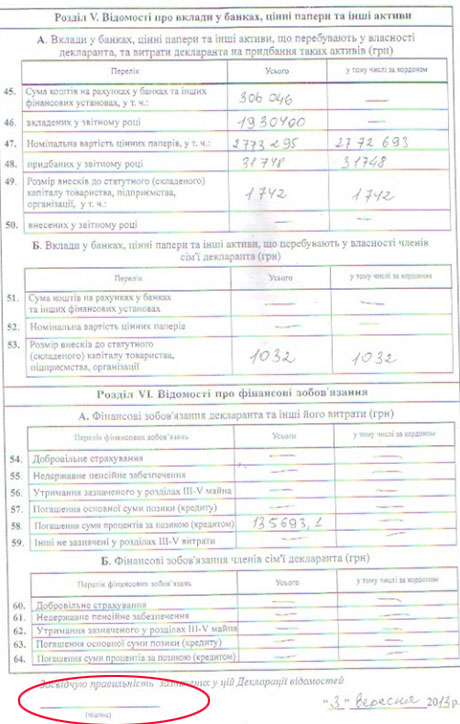 Розділ V. Відомості про вклади у банках, цінні папери та інші активи
А. Вклади у банках, цінні папери та інші активи, що перебувають у власності
декларанта, та витрати декларанта на придбання таких активів (грн)
Перелік Усього у тому числі за кордоном
45. Сума коштів на рахунках у банках та інших
фінансових установах, у т. ч.: 306 046 —
46. вкладених у звітному році 1930400 —
47. Номінальна вартість цінних паперів, у т. ч.: 2773295 2772 693
48. придбаних у звітному році 31748 31748
49. Розмір внесків до статутного (складеного)
капіталу товариства, підприємства,
організації, у т. ч.: 1742 1742
50. внесених у звітному році — —
Б. Вклади у банках, цінні папери та інші активи, що перебувають у власності членів
сім'ї декларанта (грн)
Перелік Усього у тому числі за кордоном
51. Сума коштів на рахунках у банках
та інших фінансових установах — —
52. Номінальна вартість цінних паперів — —
53. Розмір внесків до статутного
(складеного) капіталу товариства,
підприємства, організації 1032 1032
Розділ VI. Відомості про фінансові зобов'язання
А. Фінансові зобов'язання декларанта та інші його витрати (грн)
Перелік фінансових зобов'язань Усього у тому числі за кордоном
54. Добровільне страхування — —
55. Недержавне пенсійне забезпечення — —
56. Утримання зазначеного у розділах III-V майна — —
57. Погашення основної суми позики (кредиту) — —
58. Погашення суми процентів за позикою (кредитом) 135693,1 —
59. Інші не зазначені у розділах III-V витрати — —
Б. Фінансові зобов'язання членів сім'ї декларанта (грн)
Перелік фінансових зобов'язань Усього у тому числі за кордоном
60. Добровільне страхування — —
61. Недержавне пенсійне забезпечення — —
62. Утримання зазначеного у розділах III-V майна — —
63. Погашення основної суми позики (кредиту) — —
64. Погашення суми процентів за позикою (кредитом) — —
Засвідчую правильність зазначених у цій Декларації відомостей
(підпис) "3" вересня 2013 р.